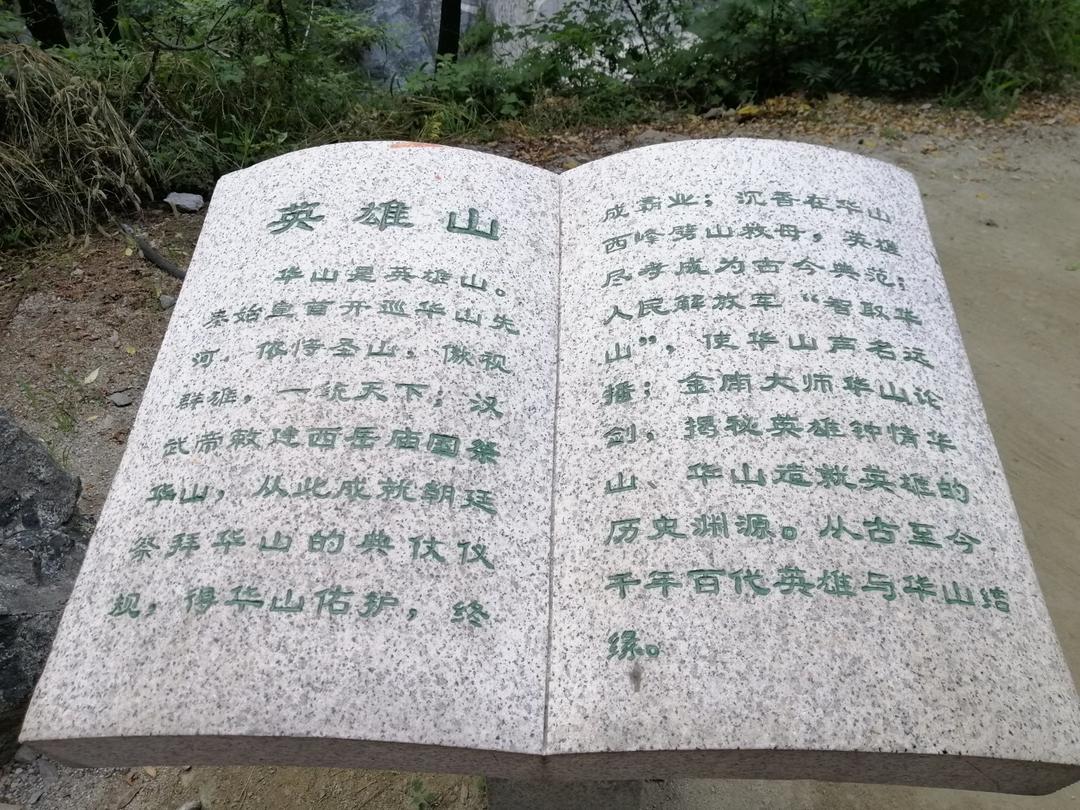 英雄山
华山是英雄山。
秦始皇首开巡华山先
河，依恃圣山，傲视
群雄，一统天下；汉
武帝敕建西岳庙国祭
华山，从此成就朝廷
祭拜华山的典仗仪
规，得华山佑护，终
成霸业；沉香在华山
西峰劈山救母，英雄
尽孝成为古今典范；
人民解放军“智取华
山”，使华山声名远
播；金庸大师华山论
剑，揭秘英雄钟情华
山、华山造就英雄的
历史渊源。从古至今
千年百代英雄与华山结
缘。